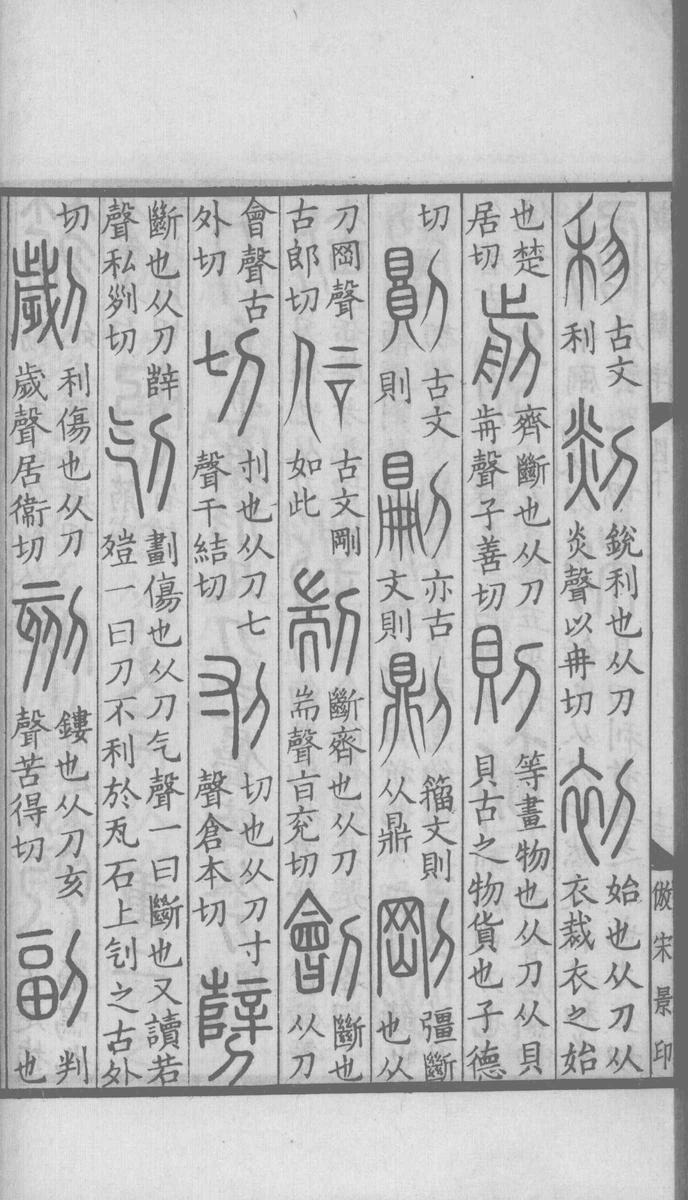 𥝢古文利剡銳利也从刀炎聲以冉切初始也从刀从衣裁衣之始
也楚居切剪齊斷也从刀歬聲子善切則等畫物也从刀从貝貝古之物貨也子德
切𠞋古文則𠟭亦古文則𠟻籀文則从鼎剛彊斷也从
刀岡聲古郎切𠇙古文剛如此剬斷齊也从刀耑聲旨兖切劊斷也从刀
會聲古外切切刌也从刀七聲千結切刌切也从刀寸聲倉本切𠠧
斷也从刀辥聲私列切刉劃傷也从刀气聲一曰斷也又讀若殪一曰刀不利於瓦石上刉之古外
切劌利傷也从刀歲聲居衞切刻鏤也从刀亥聲苦得切副判也
倣宋景印